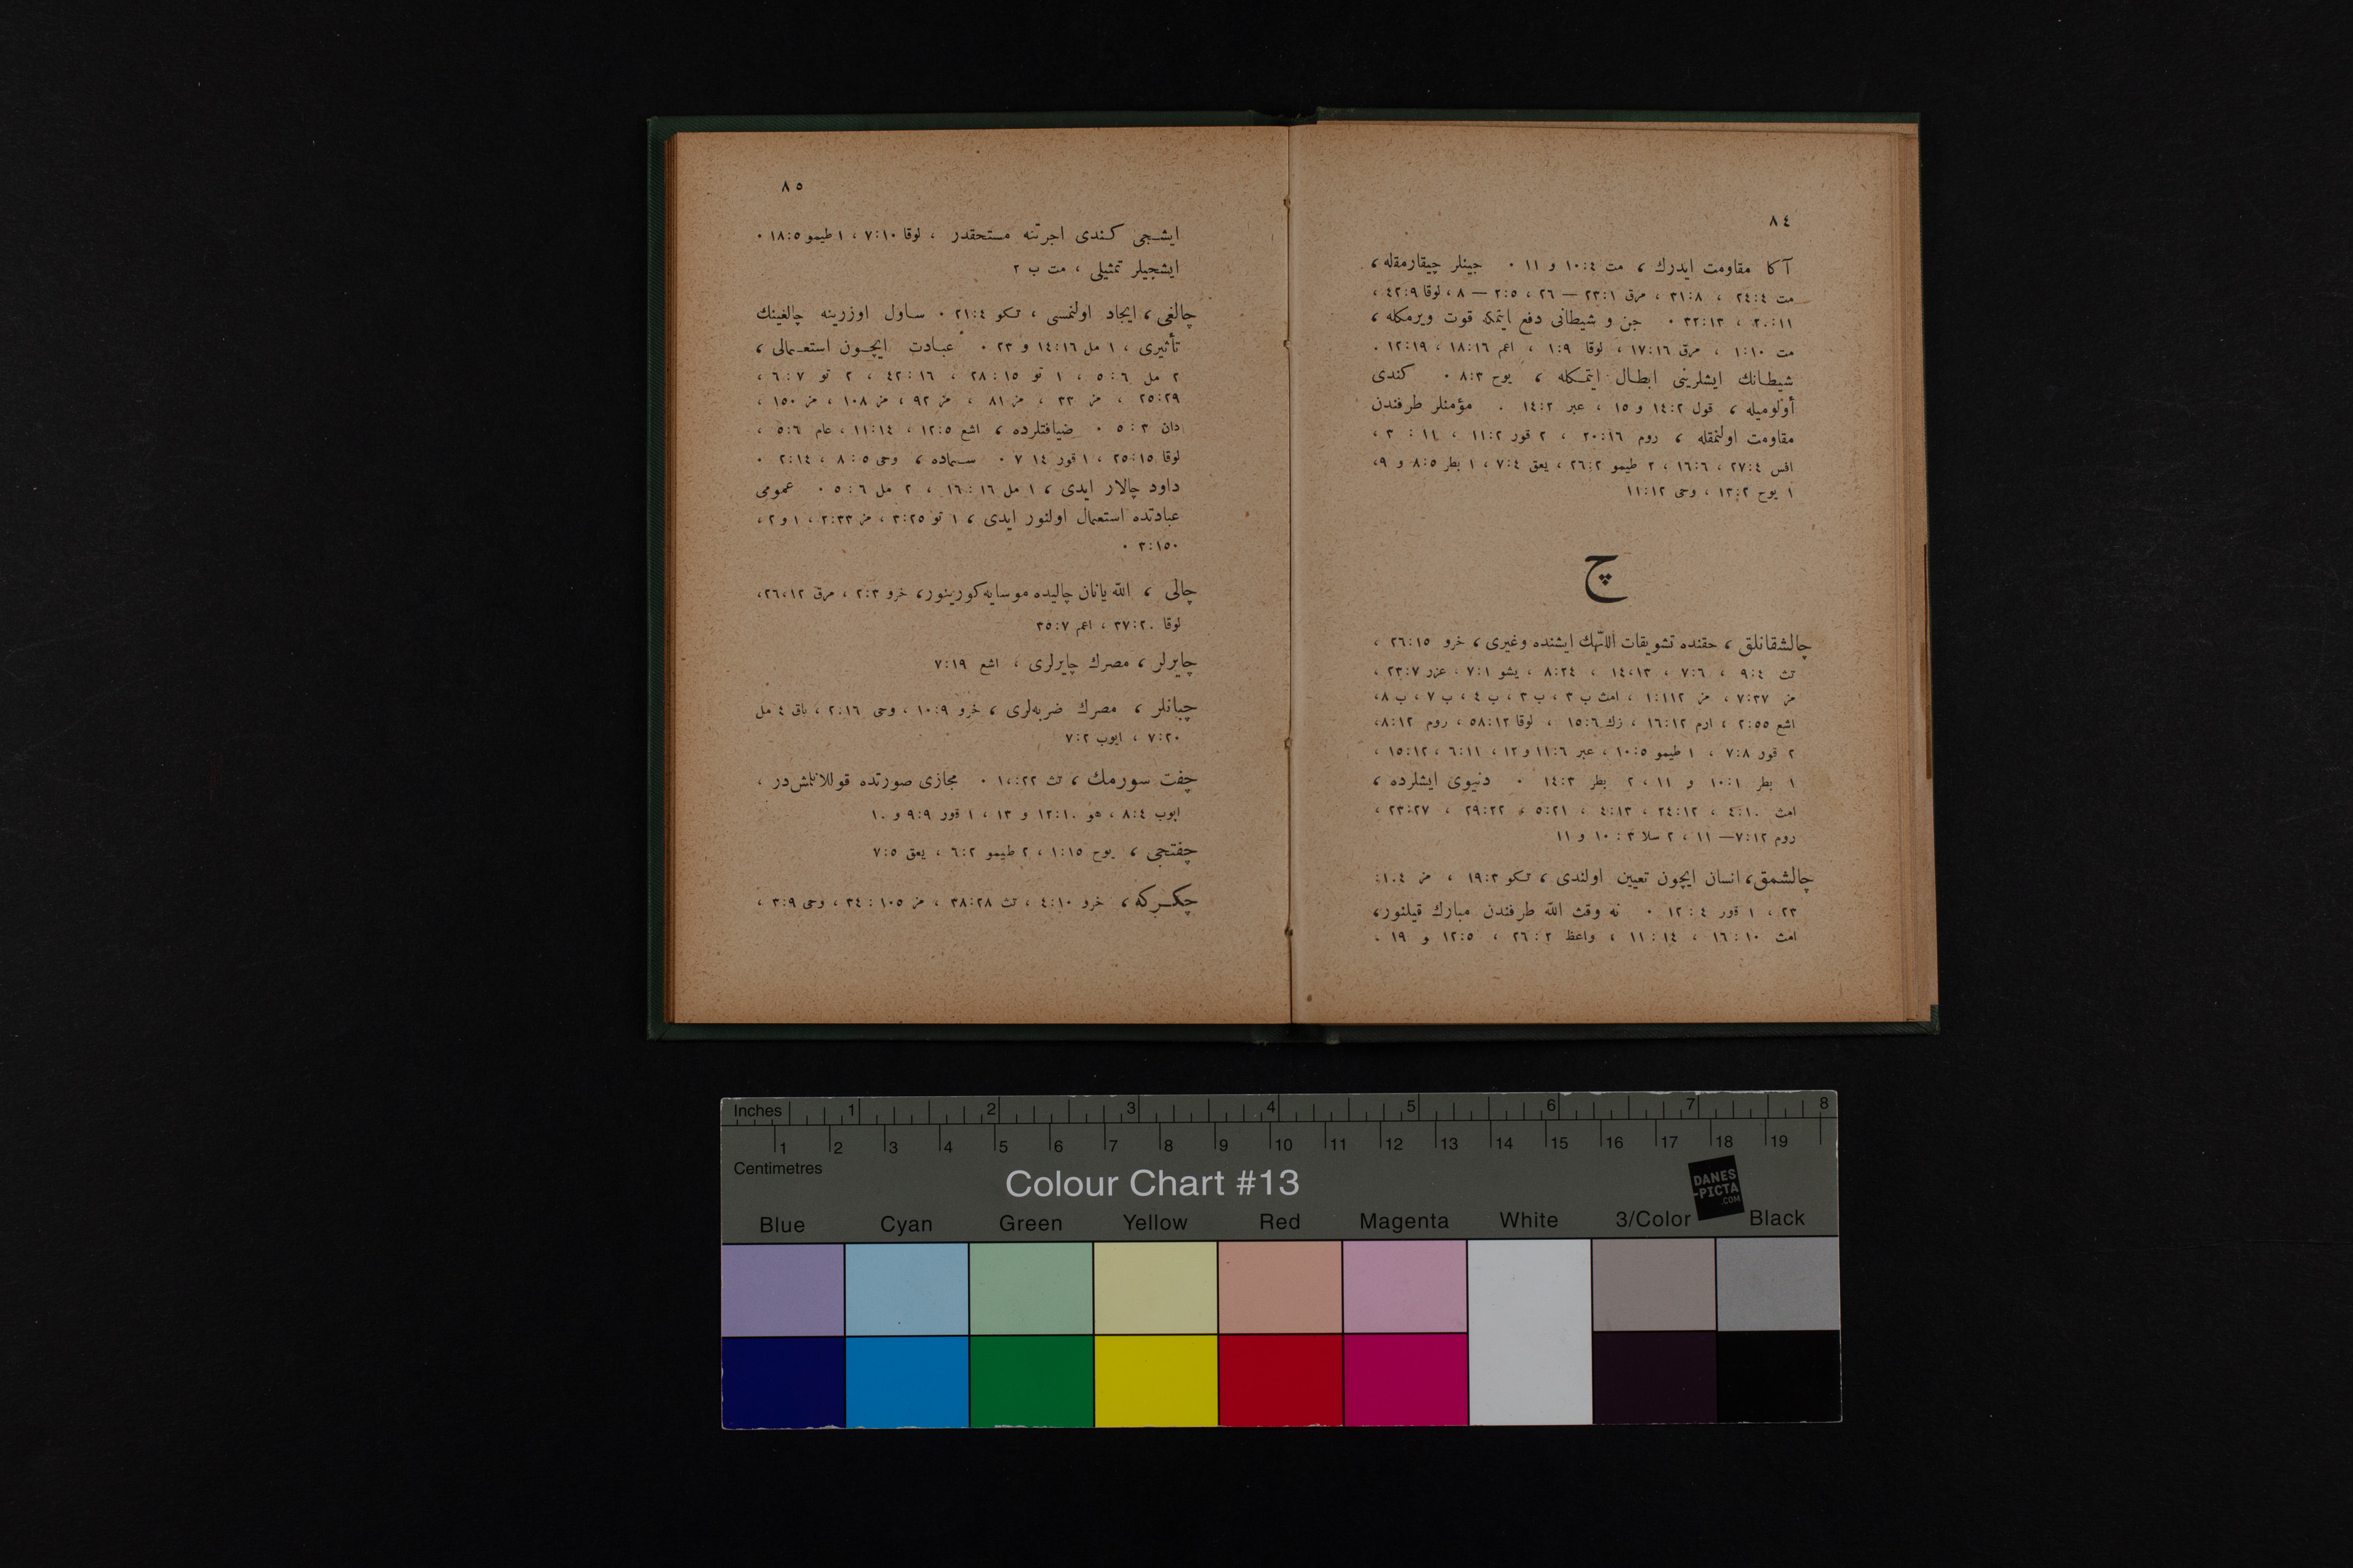 ٨٤
آكا مقاومت ايدرك ، مت ٤:١٠ و ١١ ٠ جينلر چيقارمقله ،
مت ٤:٢٤ ، ٨:٣١ ، مرق ١:٢٣ — ٢٦ ، ٥:٢ — ٨ ، لوقا ٩:٤٢ ،
١١:٢٠ ، ١٣:٣٢ ٠ جن و شيطانى دفع ايتمكه قوت ويرمكله ،
مت ١٠:١ ، مرق ١٦:١٧ ، لوقا ٩:١ ، اعم ١٦:١٨ ، ١٩:١٢ ٠
شيطانك ايشلرينى ابطال ايتمكله ، يوح ٣:٨ ٠ كندى
أولوميله ، قول ٢:١٤ و ١٥ ، عبر ٢:١٤ ٠ مؤمنلر طرفندن
مقاومت اولنمقله ، روم ١٦:٢٠ ، ٢ قور ٢:١١ ، ١١ : ٣ ،
افس ٤:٢٧ ، ٦:١٦ ، ٢ طيمو ٢:٢٦ ، يعق ٤:٧ ، ١ بطر ٥:٨ و ٩،
١ يوح ٢:١٣ ، وحى ١٢:١١
چ
چالشقانلق ، حقنده تشويقات اللّٰهك ايشنده وغيرى ، خرو ١٥:٢٦ ،
تث ٤:٩ ، ٦:٧ ، ١٤،١٣ ، ٢٤:٨ ، يشو ١:٧ ، عزر ٧:٢٣ ،
مز ٣٧:٧ ، مز ١١٢:١ ، امث ب ٣ ، ب ٣ ، ب ٤ ، ب ٧ ، ب ٨،
اشع ٥٥:٢ ، ارم ١٢:١٦ ، زك ٦:١٥ ، لوقا ١٢:٥٨ ، روم ١٢:٨،
٢ قور ٨:٧ ، ١ طيمو ٥:١٠ ، عبر ٦:١١ و ١٢ ، ١١:٦ ، ١٢:١٥ ،
١ بطر ١:١٠ و ١١ ، ٢ بطر ٣:١٤ ٠ دنيوى ايشلرده ،
امث ١٠:٤ ، ١٢:٢٤ ، ١٣:٤ ، ٢١:٥ ، ٢٢:٢٩ ، ٢٧:٢٣ ،
روم ١٢:٧— ١١ ، ٢ سلا ٣ : ١٠ و ١١
چالشمق ، انسان ايچون تعيين اولندى ، تكو ٣:١٩ ، مز ١٠٤:
٢٣ ، ١ قور ٤ : ١٢ ٠ نه وقت اللّٰه طرفندن مبارك قيلنور،
امث ١٠ : ١٦ ، ١٤ : ١١ ، واعظ ٢ : ٢٦ ، ٥:١٢ و ١٩ ٠
٨٥
ايشجى كندى اجرتنه مستحقدر ، لوقا ١٠:٧ ، ١ طيمو ٥:١٨ ٠
ايشجيلر تمثيلى ، مت ب ٢
چالغى ، ايجاد اولنمسى ، تكو ٤:٢١ ٠ ساول اوزرينه چالغينك
تأثيرى ، ١ مل ١٦:١٤ و ٢٣ ٠ عبادت ايچون استعمالى ،
٢ مل ٦ : ٥ ، ١ تو ١٥ : ٢٨ ، ١٦ : ٤٢ ، ٢ تو ٧ : ٦ ،
٢٩:٢٥ ، مز ٣٣ ، مز ٨١ ، مز ٩٢ ، مز ١٠٨ ، مز ١٥٠ ،
دان ٣ : ٥ ٠ ضيافتلرده ، اشع ٥:١٢ ، ١٤:١١ ، عام ٦:٥ ،
لوقا ١٥:٢٥ ، ١ قور ١٤ ٧ ٠ سماده ، وحى ٥ : ٨ ، ١٤:٢ ٠
داود چالار ايدى ، ١ مل ١٦ : ١٦ ، ٢ مل ٦ : ٥ ٠ عمومى
عبادتده استعمال اولنور ايدى ، ١ تو ٢٥:٣ ، مز ٣٣:٢ ، ١ و ٢ ،
١٥٠:٣ ٠
چالى ، اللّٰه يانان چاليده موسايه كورينور، خرو ٣:٢ ، مرق ٢٦،١٢،
لوقا ٢٠:٣٧ ، اعم ٧:٣٥
چايرلر ، مصرك چايرلرى ، اشع ١٩:٧
چبانلر ، مصرك ضربه‌لرى ، خرو ٩:١٠ ، وحى ١٦:٢ ، باق ٤ مل
٢٠:٧ ، ايوب ٢:٧
چفت سورمك ، تث ٢٢:١٠ ٠ مجازى صورتده قوللانلمش‌در ،
ايوب ٤:٨ ، هو ١٠:١٢ و ١٣ ، ١ قور ٩:٩ و ١٠
چفتجى ، يوح ١٥:١ ، ٢ طيمو ٢:٦ ، يعق ٥:٧
چكركه ، خرو ١٠:٤ ، تث ٢٨:٣٨ ، مز ١٠٥ : ٣٤ ، وحى ٩:٣ ،
Inches 1 2 3 4 5 6 7 8
1 2 3 4 5 6 7 8 9 10 11 12 13 14 15 16 17 18 19
Centimetres
Colour Chart #13
DANES
-PICTA
.COM
Blue Cyan Green Yellow Red Magenta White 3/Color Black